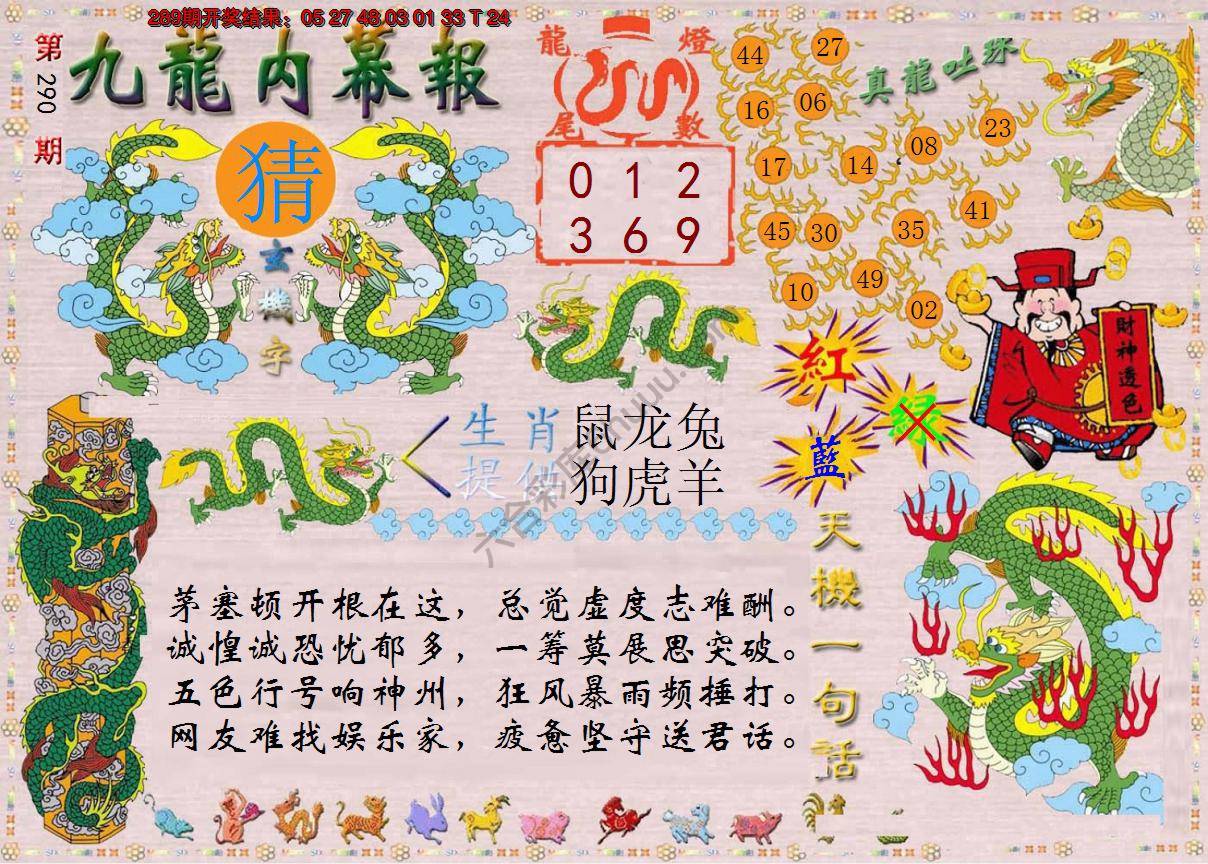 289期开奖结果：05 27 48 03 01 33 T 24
第290期
九龍内幕報
猜
玄機字
龍燈
尾數
0 1 2
3 6 9
真龍吐珠
44 27
16 06
17 14 08 23
45 30 35 41
10 49 02
財神透色
紅
绿
藍
生肖
提供
鼠龙兔
狗虎羊
天機一句話
茅塞顿开根在这，总觉虚度志难酬。
诚惶诚恐忧郁多，一筹莫展思突破。
五色行号响神州，狂风暴雨频捶打。
网友难找娱乐家，疲惫坚守送君话。